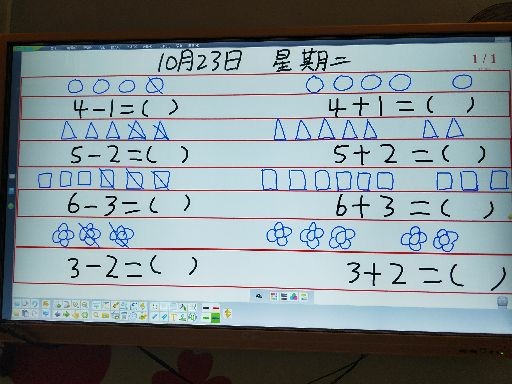 10月23日 星期二
1/1
4-1=( ) 4+1=( )
5-2=( ) 5+2=( )
6-3=( ) 6+3=( )
3-2=( ) 3+2=( )